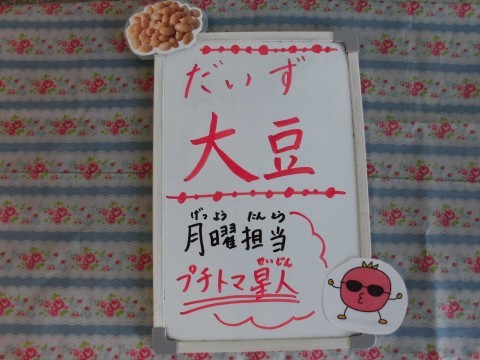 だいず
大豆
げつ よう たん とう
月曜担当
せいじん
プチトマ星人